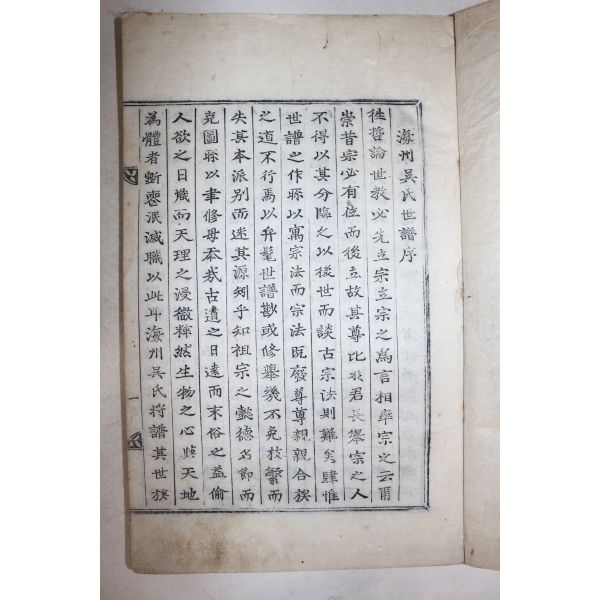 海州吳氏世譜序
往哲論世教必先立宗立宗之爲言相率宗之云爾
崇昔宗必有位而後立故其尊比於君長舉宗之人
不得以其分臨之以後世而談古宗法則難矣肆惟
世譜之作所以寓宗法而宗法旣廢尊尊親親合族
之道不行焉以弁髦世譜尠或修舉幾不免枝繁而
失其本派別而迷其源矧乎知祖宗之懿德名節而
克圖所以聿修毋忝哉古道之日遠而末俗之益偷
人欲之日熾而天理之浸微粹然生物之心與天地
為體者斲喪泯滅職以此耳海州吳氏將譜其世族
一